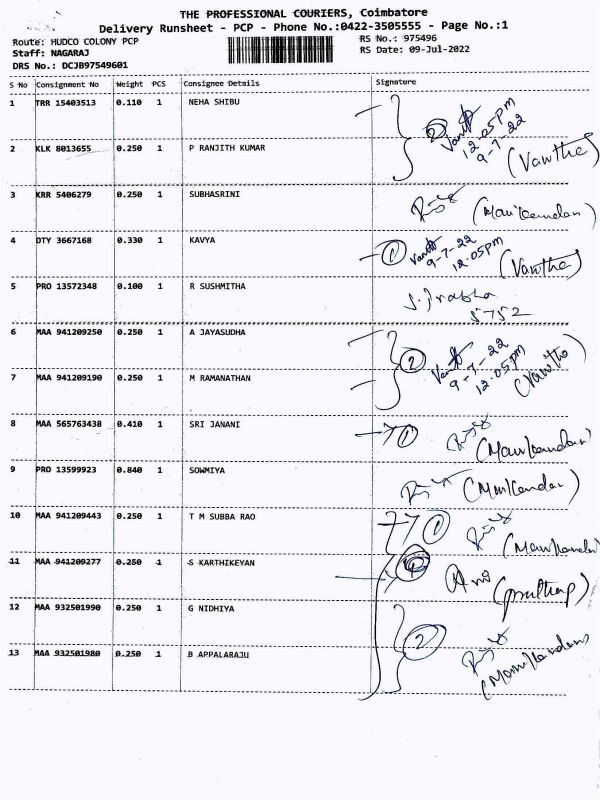 THE PROFESSIONAL COURIERS, Coimbatore
Delivery Runsheet - PCP - Phone No.:0422-3505555 - Page No.:1
Route: HUDCO COLONY PCP
Staff: NAGARAJ
DRS No.: DCJB97549601
RS No.: 975496
RS Date: 09-Jul-2022
S No Consignment No Weight PCS Consignee Details Signature
1 TRR 15403513 0.110 1 NEHA SHIBU
2 12.05pm
9-7-22
2 KLK 8013655 0.250 1 P RANJITH KUMAR
(Vawtha)
3 KRR 5406279 0.250 1 SUBHASRINI
(Manikandan)
4 DTY 3667168 0.330 1 KAVYA
1 9-7-22
12.05pm
(Vawtha)
5 PRO 13572348 0.100 1 R SUSHMITHA
S. Prabha
5752
6 MAA 941209250 0.250 1 A JAYASUDHA
2 9-7-22
12.05pm
(Vawtha)
7 MAA 941209190 0.250 1 M RAMANATHAN
8 MAA 565763438 0.410 1 SRI JANANI
1 (Manikandan)
9 PRO 13599923 0.840 1 SOWMIYA
(Manikandan)
10 MAA 941209443 0.250 1 T M SUBBA RAO
1 (Manikandan)
11 MAA 941209277 0.250 1 S KARTHIKEYAN
(prathap)
12 MAA 932501990 0.250 1 G NIDHIYA
2
13 MAA 932501980 0.250 1 B APPALARAJU
(Manikandan)